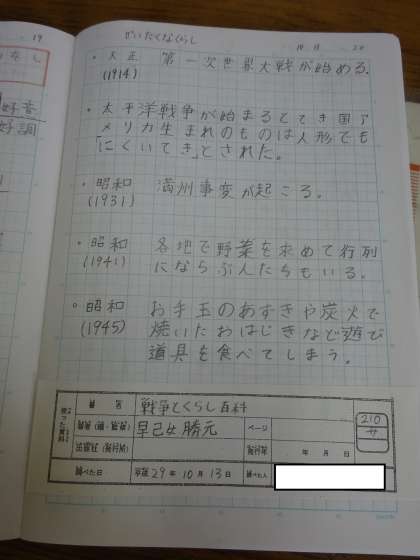 19
ぜいたくなくらし
10月 20
・大正 第一次世界大戦が始める。
(1914)
・太平洋戦争が始まるとてき国ア
メリカ生まれのものは人形でも
「にくいてき」とされた。
・昭和 満州事変が起こる。
(1931)
・昭和 各地で野菜を求めて行列
(1941) にならぶ人たちもいる。
・昭和 お手玉のあずきや炭火で
(1945) 焼いたおはじきなど遊び
道具を食べてしまう。
使った資料
書名 戦争とくらし百科
早乙女勝元 ページ
210
出版社(発行所) 発行年 年 月 日
調べた日 平成29年10月13日 調べた人
好調